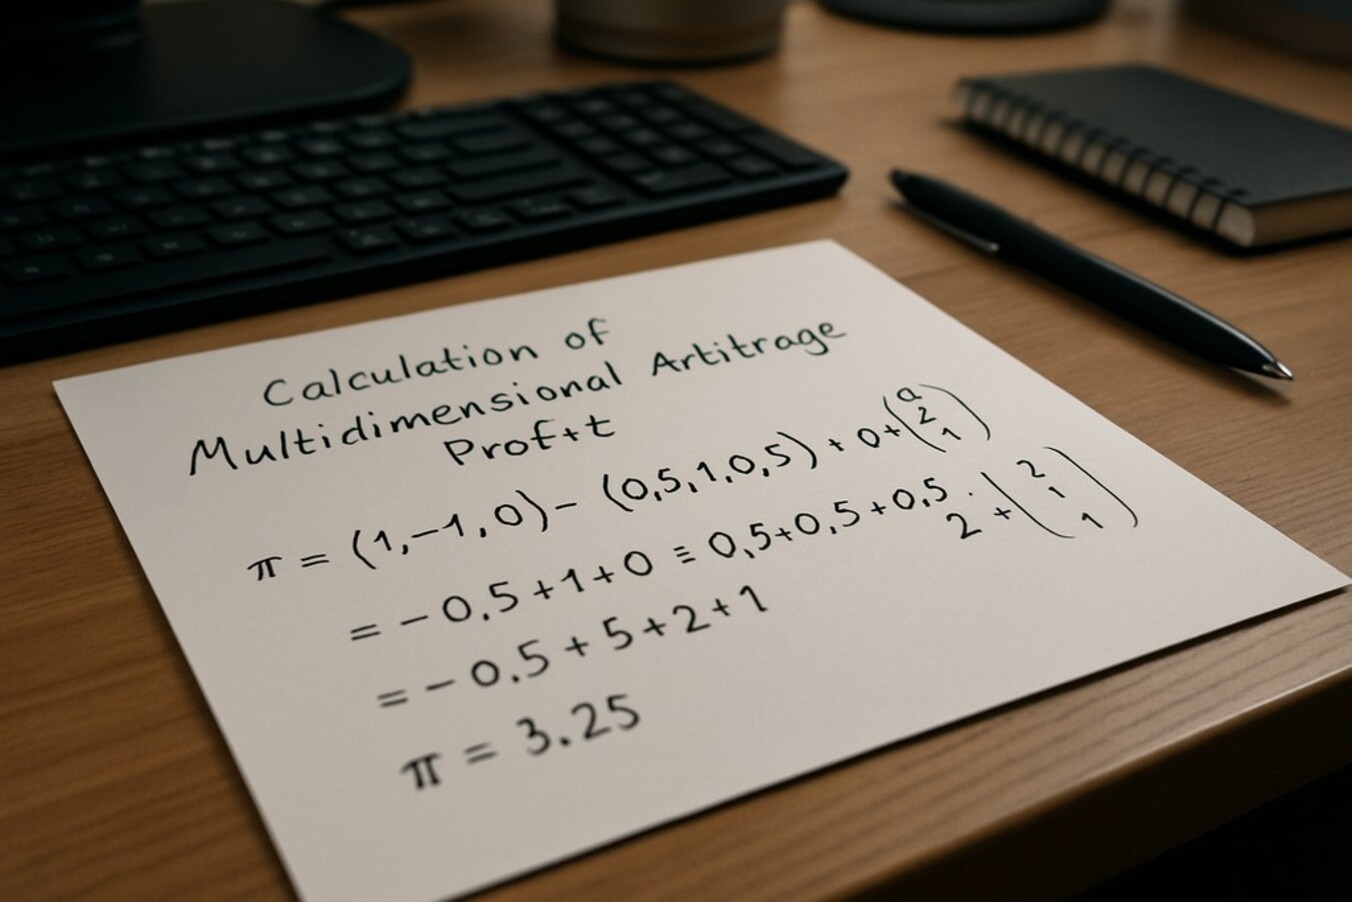 Calculation of
Multidimensional Artitrage
Prof+t
π = (1,−1,0)− (0,5,1,0,5) + 0+(a 2 1)
= − 0.5+1+0 ≡ 0,5+0,5+0,5 · 2 + (2 1 1)
= − 0.5 + 5+2+1
π = 3.25